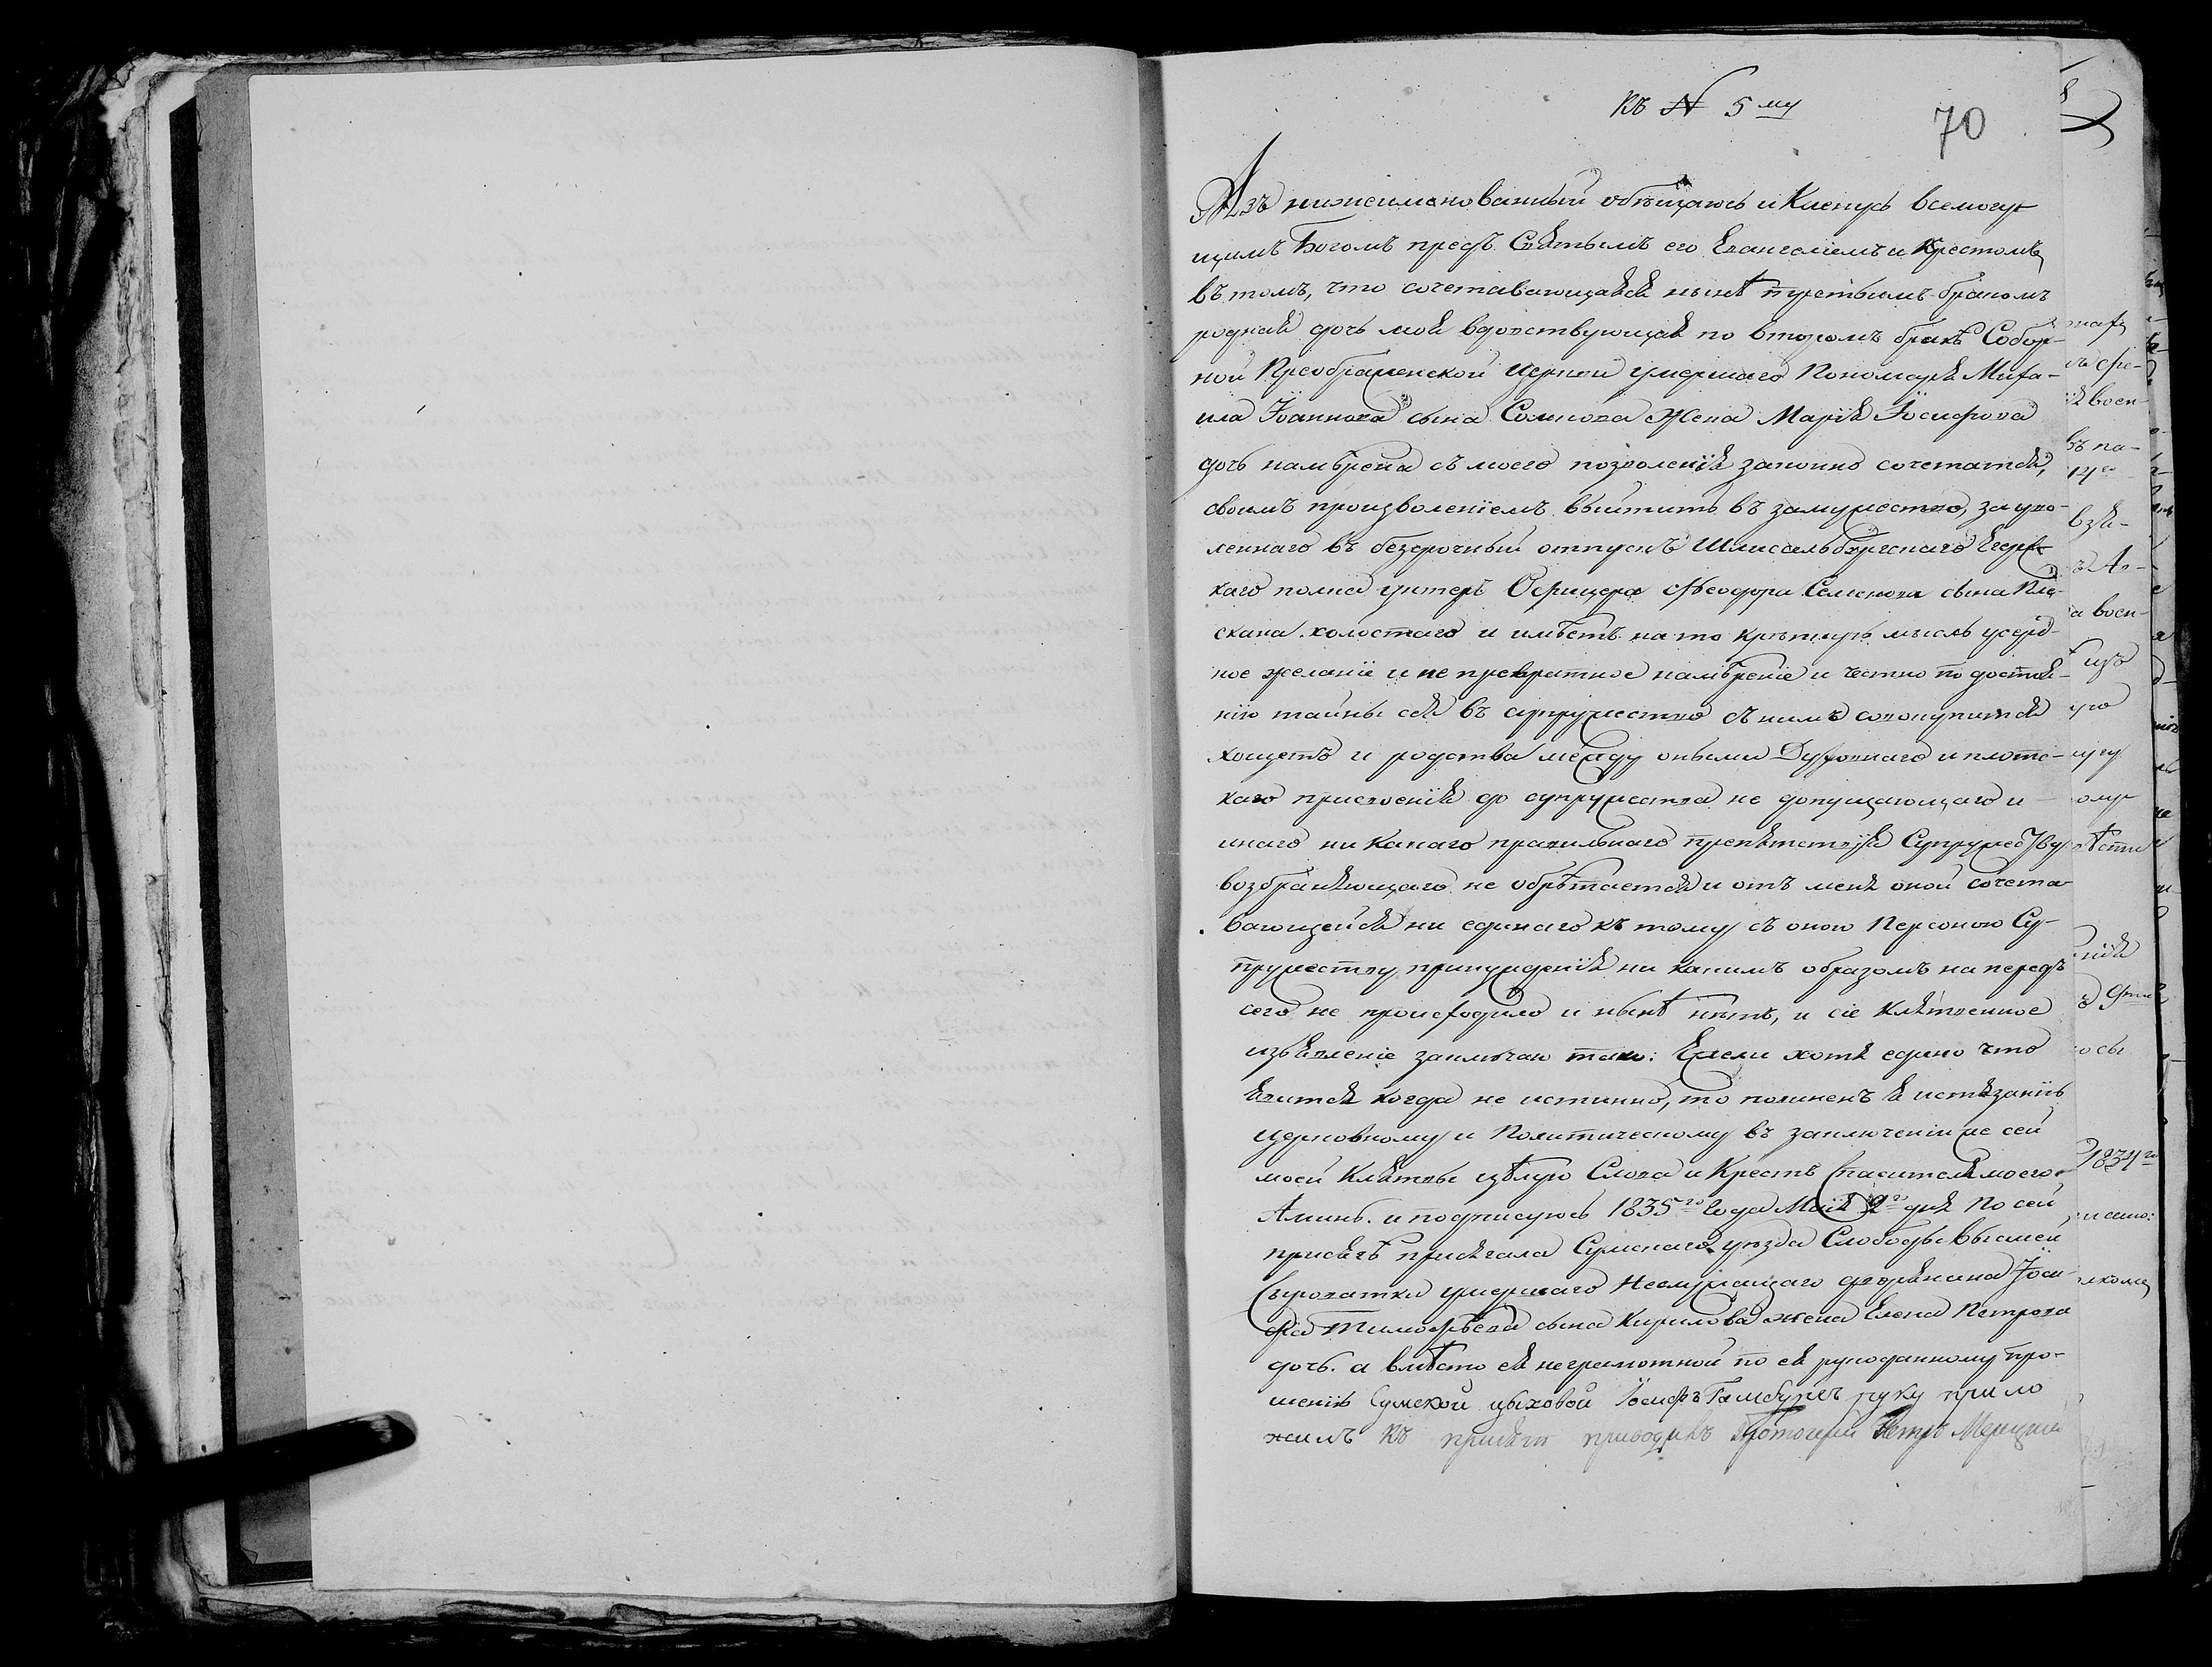 къ № 5му
70
Азъ нижеименованный обѣщаюсь и Кленусь всемогу-
щимъ Богомъ предъ Святымъ его Евангелiемъ и Крестомъ
въ томъ, что сочетавающаяся нынѣ третьимъ бракомъ
родная дочь моя вдовствующая по второмъ бракѣ Собор-
ной Преображенской Церкви умершаго Пономаря Миха-
ила Iоаннова сына жена Марiя Iосифова
дочь намѣрена съ моего позволенiя законно сочетатся,
своимъ произволенiемъ выйтить въ замужество, за уво-
леннаго въ безсрочный отпускъ Шлиссельбургскаго Егерс-
каго полка унтеръ Офицера Феодора Семенова сына Пле-
скана холостаго и имѣетъ на то крѣпкую мысль усерд-
ное желанiе и не превратное намѣренiе и честно по достоя-
нiю тайны сея въ супружество съ нимъ совокупится
хощетъ и родства между оными Духовнаго и плотс-
каго присвоенiя до супружества не допущающаго и
инаго ни Какаго правильнаго препятствiя Супружеству
возбраняющаго не обрѣтается и отъ меня оной сочета-
вающейся ни единаго къ тому съ оною Персоною Су-
пружеству принужденiя ни какимъ образомъ на передъ
сего не происходило и нынѣ нѣтъ, и сiе Клятвенное
изъявленiе заключаю тако: Ежели хотя едино что
явится когда не истинно, то повиненъ я истязанiю
церковному и Политическому въ заключенiи же сей
моей Клятвы цѣлую Слова и Крестъ Спасителя моего
Аминь. и подписуюсь 1835го Года Маiя 2го дня По сей
присягѣ присягала Сумскаго уѣзда Слободы Высшей
Сыроватки умершаго дворянина Iоси-
фа Тимофѣева сына Кирилова жена Елена Петрова
дочь. а вмѣсто ея неграмотной по ея рукоданному про-
шенiю Сумской цѣховой Iосифъ руку прило
жилъ Къ присягѣ приводилъ Протоiерей Петръ